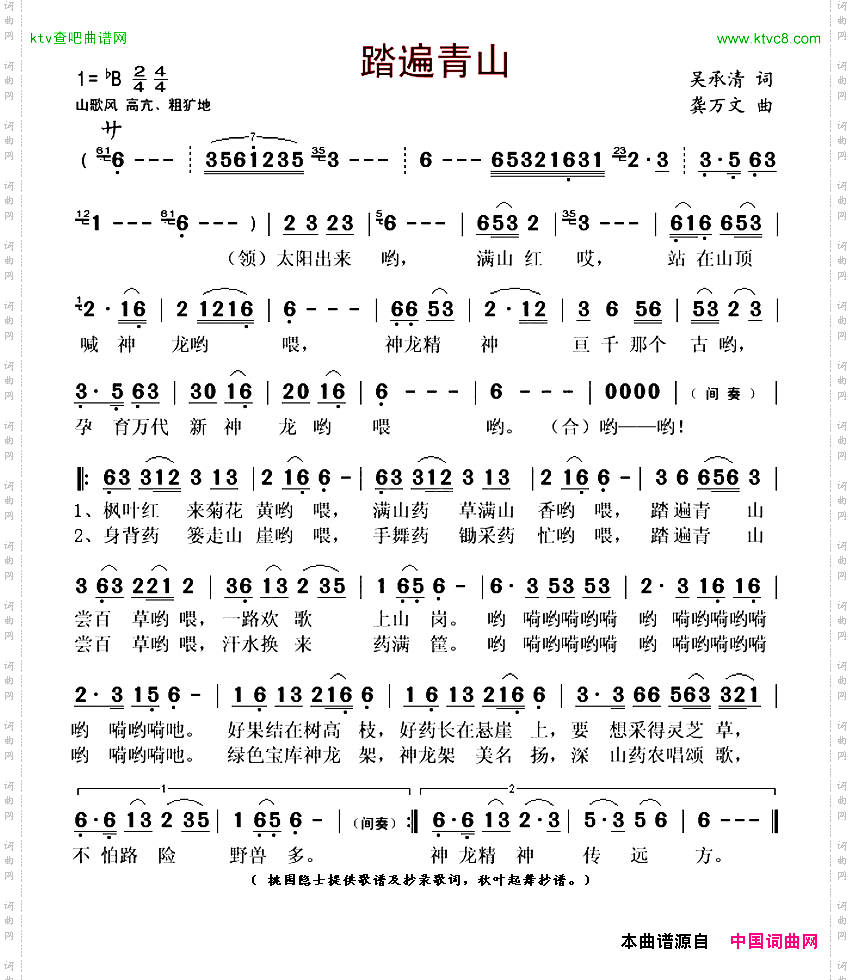 ktv查吧曲谱网 www.ktvc8.com
踏遍青山
1=♭B 2/4 4/4 吴承清 词
山歌风 高亢、粗犷地 龚万文 曲
廾
( 6 - - - 3561235 3 - - - 6 - - - 65321631 2·3 3·5 63
1 - - - 6 - - - ) | 2 3 23 | 6 - - - | 653 2 | 3 - - - | 616 653 |
（领）太阳出来 哟， 满山 红 哎， 站 在山顶
2· 16 | 2 1216 | 6 - - - | 66 53 | 2·12 | 3 6 56 | 53 2 3 |
喊 神 龙哟 喂， 神龙精 神 亘 千 那个 古 哟，
3·5 63 | 30 16 | 20 16 | 6 - - - | 6 - - - | 0000 | （间奏） |
孕 育万代 新 神 龙 哟 喂 哟。 （合）哟——哟!
‖: 63 312 3 13 | 2 16 6 - | 63 312 3 13 | 2 16 6 - | 3 6 656 3 |
1、枫叶红 来菊花 黄哟 喂， 满山药 草满山 香哟 喂， 踏遍青 山
2、身背药 篓走山 崖哟 喂， 手舞药 锄采药 忙哟 喂， 踏遍青 山
3 63 221 2 | 36 13 2 35 | 1 65 6 - | 6·3 53 53 | 2·3 16 16 |
尝百 草哟 喂，一路欢 歌 上山 岗。 哟 嗬哟嗬哟嗬 哟 嗬哟嗬哟嗬
尝百 草哟 喂，汗水换 来 药满 筐。 哟 嗬哟嗬哟嗬 哟 嗬哟嗬哟嗬
2·3 15 6 - | 1 6 13 216 6 | 1 6 13 216 6 | 3·3 66 563 321 |
哟 嗬哟嗬吔。 好果结在树高 枝，好药长在悬崖 上，要 想采得灵芝 草，
哟 嗬哟嗬吔。 绿色宝库神龙 架，神龙架 美名 扬，深 山药农唱颂 歌，
1 2
6·6 13 2 35 | 1 65 6 - | （间奏） :‖ 6·6 13 2·3 | 5·3 5 6 | 6 - - - ‖
不 怕路 险 野兽 多。 神 龙精 神 传 远 方。
( 桃园隐士提供歌谱及抄录歌词，秋叶起舞抄谱。)
本曲谱源自 中国词曲网